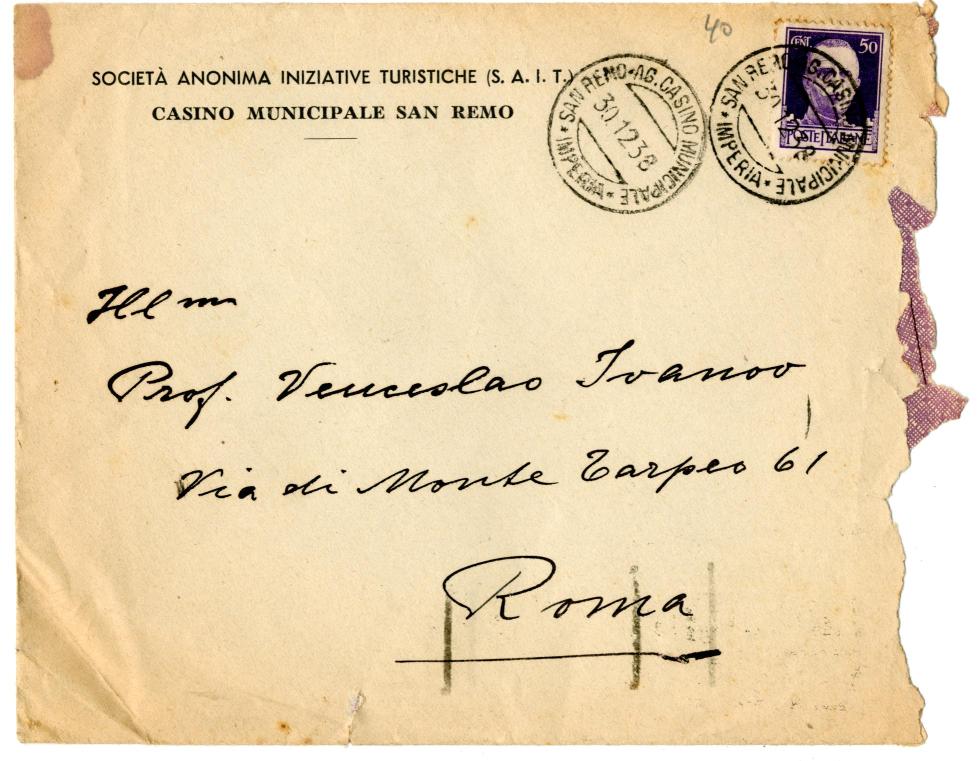 40
SOCIETÀ ANONIMA INIZIATIVE TURISTICHE (S. A. I. T.)
CASINO MUNICIPALE SAN REMO
SAN REMO-AG.CASINO MUNICIPALE * IMPERIA *
30.12 38
SAN REMO AG.CASINO MUNICIPALE * IMPERIA *
30.12 38
CENT. 50
POSTE ITALIANE
Ill mo
Prof. Venceslao Ivanov
Via di Monte Tarpeo 61
Roma